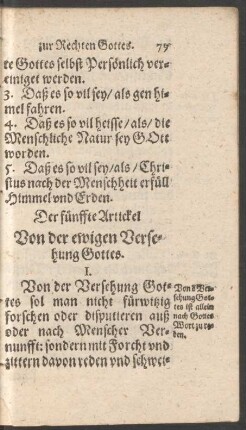 zur Rechten Gottes. 79
te Gottes selbst Persönlich ver-
einiget werden.
3. Daß es so vil sey/ als gen hi-
mel fahren.
4. Daß es so vil heisse/ als/ die
Menschliche Natur sey GOtt
worden.
5. Daß es so vil sey/als/ Chri-
stus nach der Menschheit erfüll
Himmel vnd Erden.
Der fünffte Artickel
Von der ewigen Verse-
hung Gottes.
I.
Von der Versehung Got-
tes sol man nicht fürwitzig
forschen oder disputieren auß
oder nach Menscher Ver-
nunfft: sondern mit Forcht vnd
zittern davon reden vnd schwei-
Von d Ver-
sehung Got-
tes ist allein
nach Gottes
Wort zu re-
den.